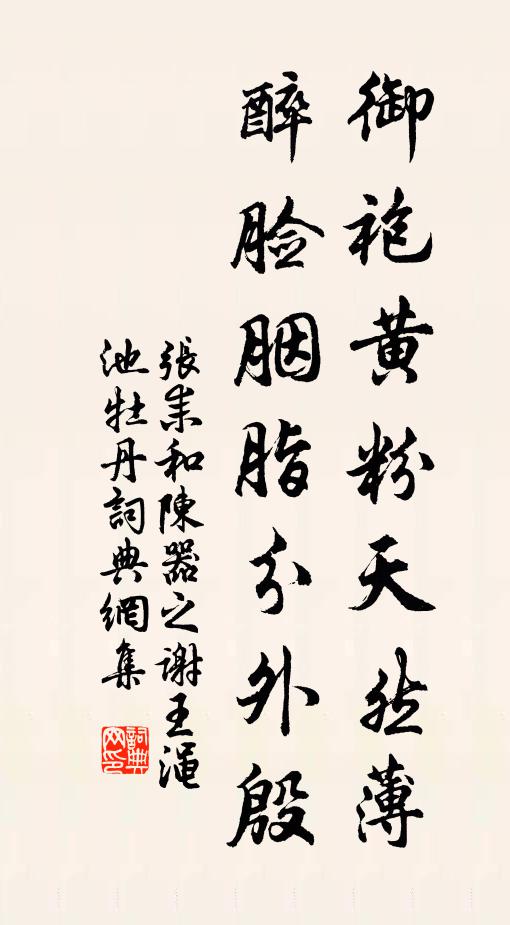 御袍黄粉天然薄
醉脸胭脂分外殷
張耒和陳器之谢王渑
池牡丹詞典網集
詞典
网印